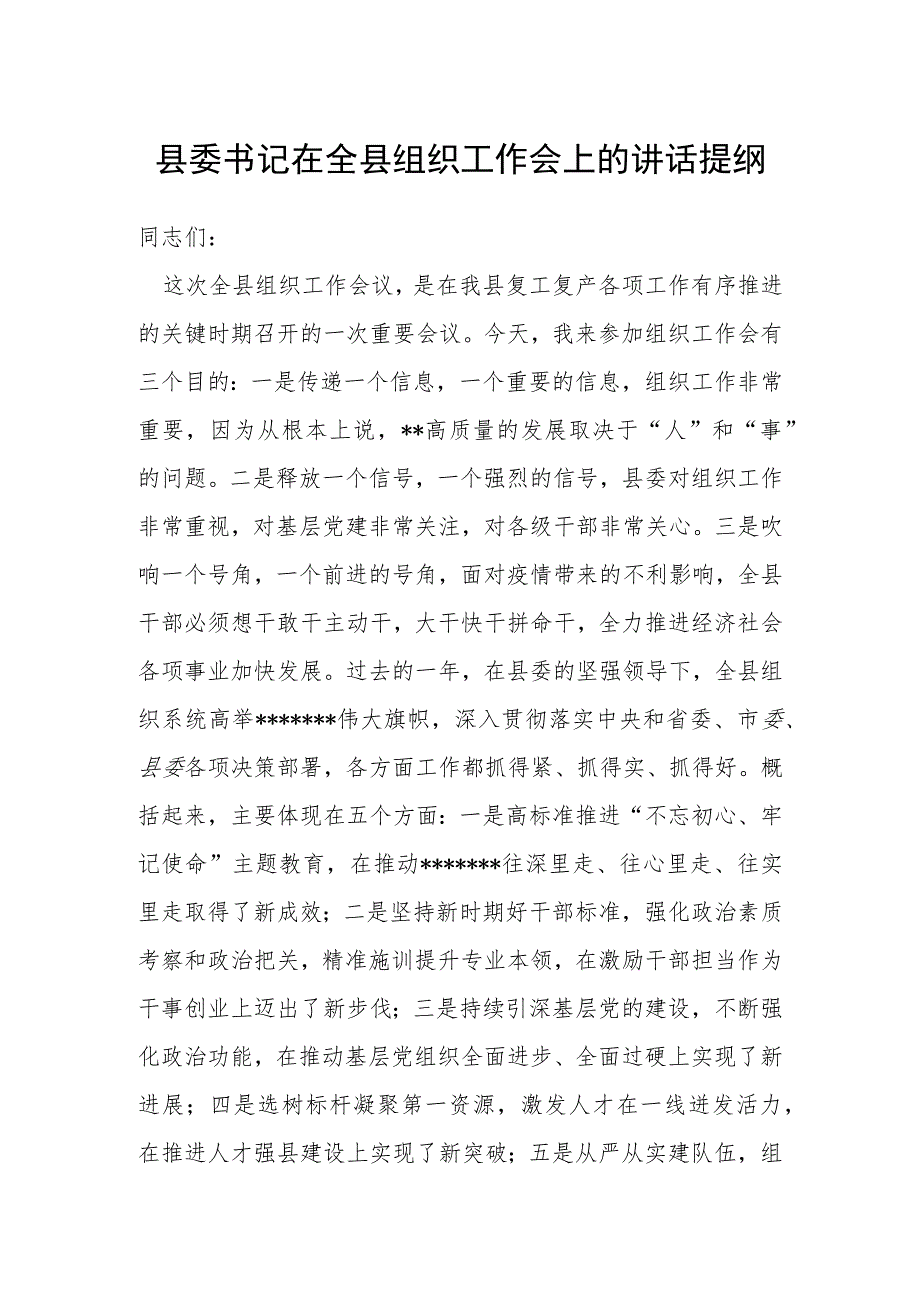 县委书记在全县组织工作会上的讲话提纲
同志们：
这次全县组织工作会议，是在我县复工复产各项工作有序推进
的关键时期召开的一次重要会议。今天，我来参加组织工作会有
三个目的：一是传递一个信息，一个重要的信息，组织工作非常
重要，因为从根本上说，**高质量的发展取决于“人”和“事”
的问题。二是释放一个信号，一个强烈的信号，县委对组织工作
非常重视，对基层党建非常关注，对各级干部非常关心。三是吹
响一个号角，一个前进的号角，面对疫情带来的不利影响，全县
干部必须想干敢干主动干，大干快干拼命干，全力推进经济社会
各项事业加快发展。过去的一年，在县委的坚强领导下，全县组
织系统高举*******伟大旗帜，深入贯彻落实中央和省委、市委、
县委各项决策部署，各方面工作都抓得紧、抓得实、抓得好。概
括起来，主要体现在五个方面：一是高标准推进“不忘初心、牢
记使命”主题教育，在推动*******往深里走、往心里走、往实
里走取得了新成效；二是坚持新时期好干部标准，强化政治素质
考察和政治把关，精准施训提升专业本领，在激励干部担当作为
干事创业上迈出了新步伐；三是持续引深基层党的建设，不断强
化政治功能，在推动基层党组织全面进步、全面过硬上实现了新
进展；四是选树标杆凝聚第一资源，激发人才在一线迸发活力，
在推进人才强县建设上实现了新突破；五是从严从实建队伍，组